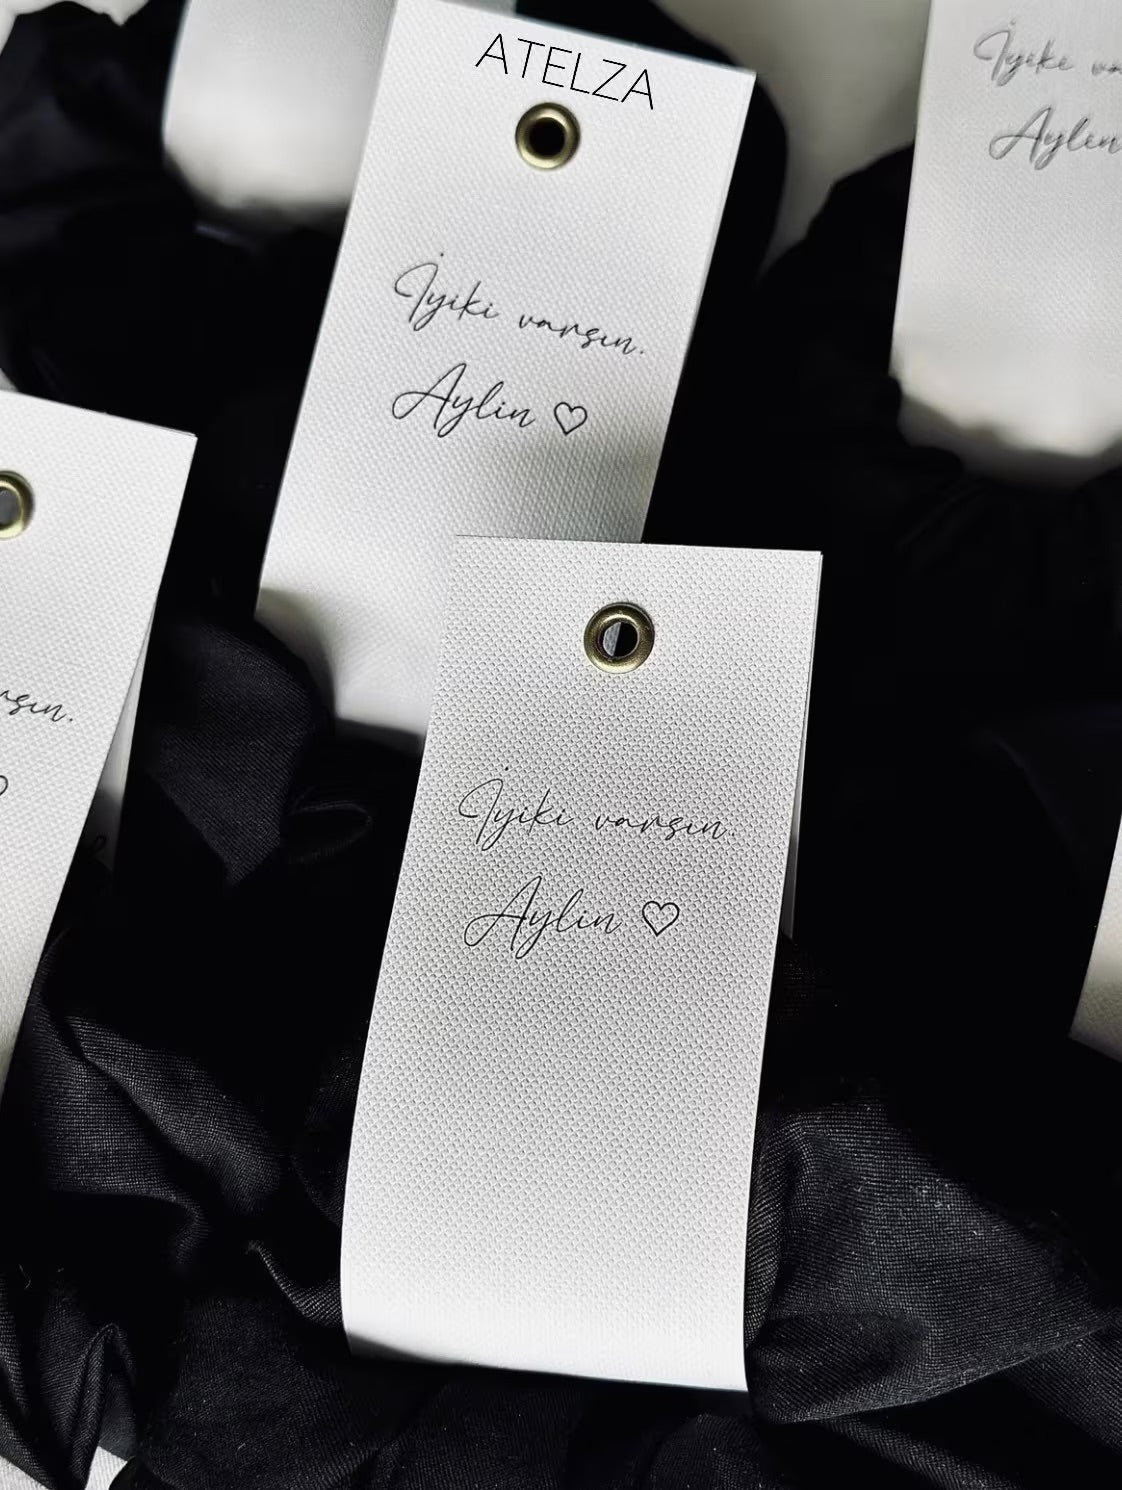 ATELZA
İyiki varsın.
Aylin ♡
İyiki
Aylin
rsın.
İyiki varsın.
Aylin ♡